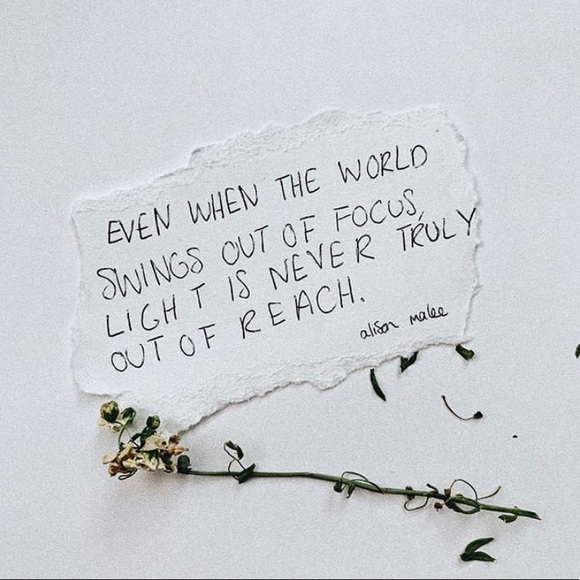 EVEN WHEN THE WORLD
SWINGS OUT OF FOCUS,
LIGHT IS NEVER TRULY
OUT OF REACH.
alison malee